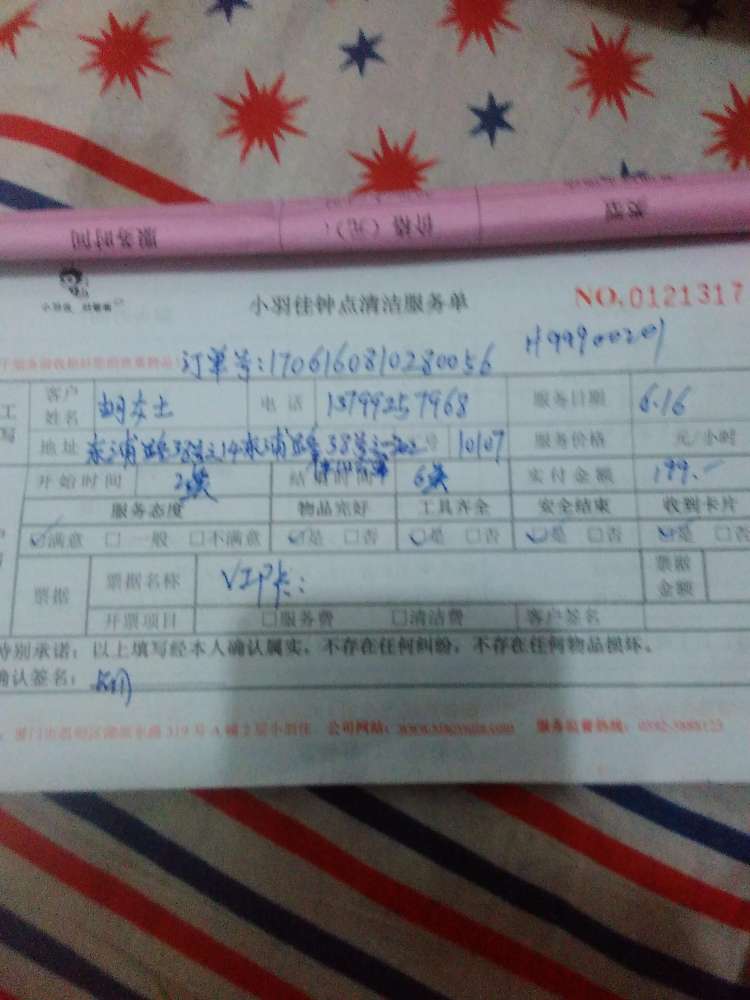 服务时间 价格（元）： 类型
小羽佳钟点清洁服务单 NO.0121317
订单号:1706160810280056 H99900201
客户姓名 胡女士 电话 13799257968 服务日期 6.16
地址 东浦路38号之 号 10107 服务价格 元/小时
开始时间 2点 结束时间 6点 实付金额 199.-
服务态度 物品完好 工具齐全 安全结束 收到卡片
满意 □一般 □不满意 是 □否 是 □否 是 □否 是 □否
票据 票据名称 VIP卡: 票据金额
开票项目 □服务费 □清洁费 客户签名
特别承诺：以上填写经本人确认属实，不存在任何纠纷，不存在任何物品损坏。
确认签名：
319号A幢2层小羽佳 公司网站：www.xiaoyujia.com 服务监督热线：